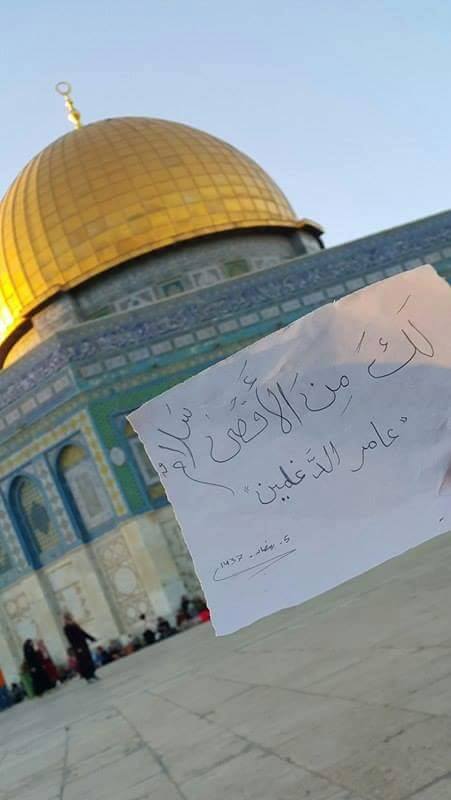 لَكَ مِنَ الأَقْصَى سَلَامٌ
"عامر الدَّغمين"
5 - رمضان - 1437